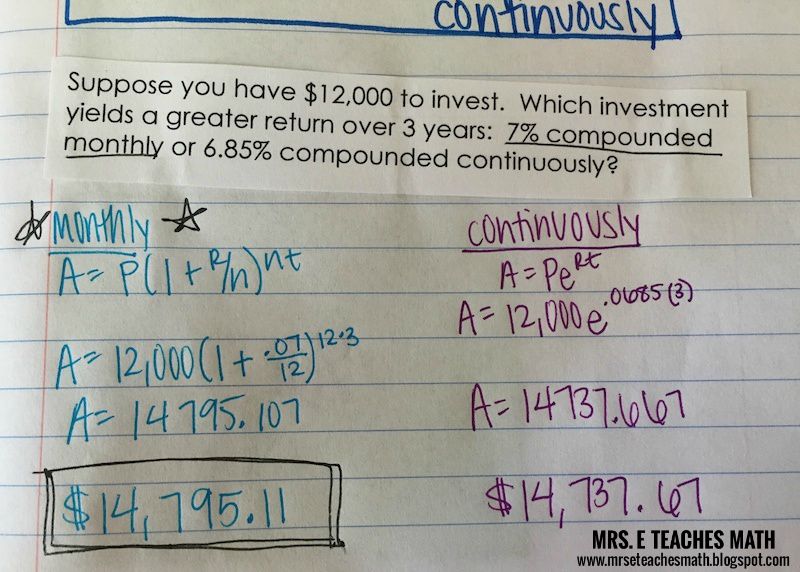 continuously
Suppose you have $12,000 to invest. Which investment
yields a greater return over 3 years: 7% compounded
monthly or 6.85% compounded continuously?
monthly
A = P(1 + R/n)^nt
A = 12,000(1 + .07/12)^12·3
A = 14795.107
$14,795.11
continuously
A = Pe^Rt
A = 12,000e^.0685(3)
A = 14737.667
$14,737.67
MRS. E TEACHES MATH
www.mrseteachesmath.blogspot.com